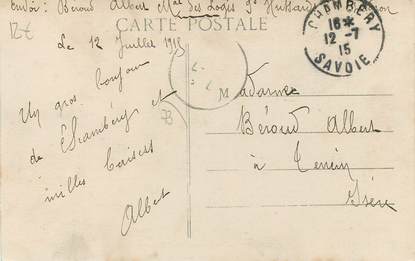 envoi: Béroud Albert Mal des Logis 9e Hussards
CARTE POSTALE
Le 12 Juillet 1915
CHAMBERY
16 *
12 - 7
15
SAVOIE
Un gros bonjour
de Chambéry et
milles baisers
Albert
Madame
Béroud Albert
à
Isère